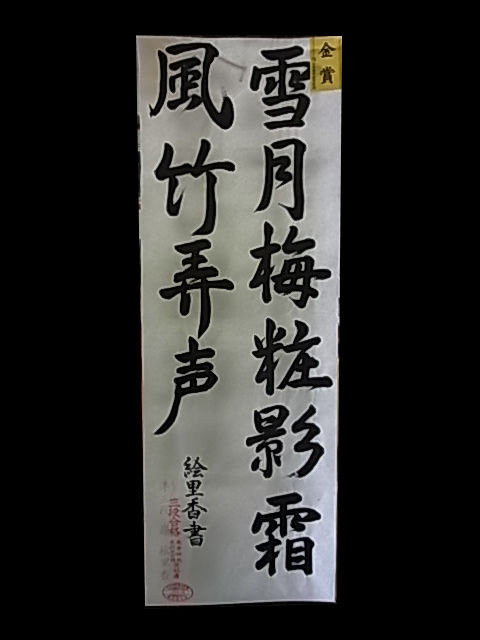 金賞
雪月梅粧影霜
風竹弄声
絵里香書
三段合格